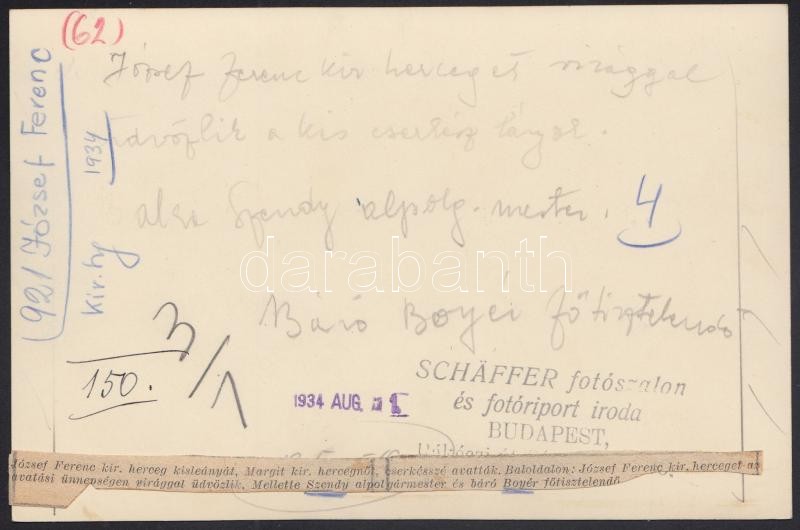 (62)
József Ferenc kir herceget virággal
üdvözlik a kis cserkész lányok.
Szendy alpolg. mester.
4
Báró Boyéi főtisztelendő
921 József Ferenc
kir. hg
1934
150.
3/1
darabanth
1934 AUG.
SCHÄFFER fotószalon
és fotóriport iroda
BUDAPEST,
József Ferenc kir. herceg kisleányát, Margit kir. hercegnőt, cserkésszé avatták. Baloldalon: József Ferenc kir. herceget az
avatási ünnepségen virággal üdvözlik. Mellette Szendy alpolgármester és báró Boyér főtisztelendő